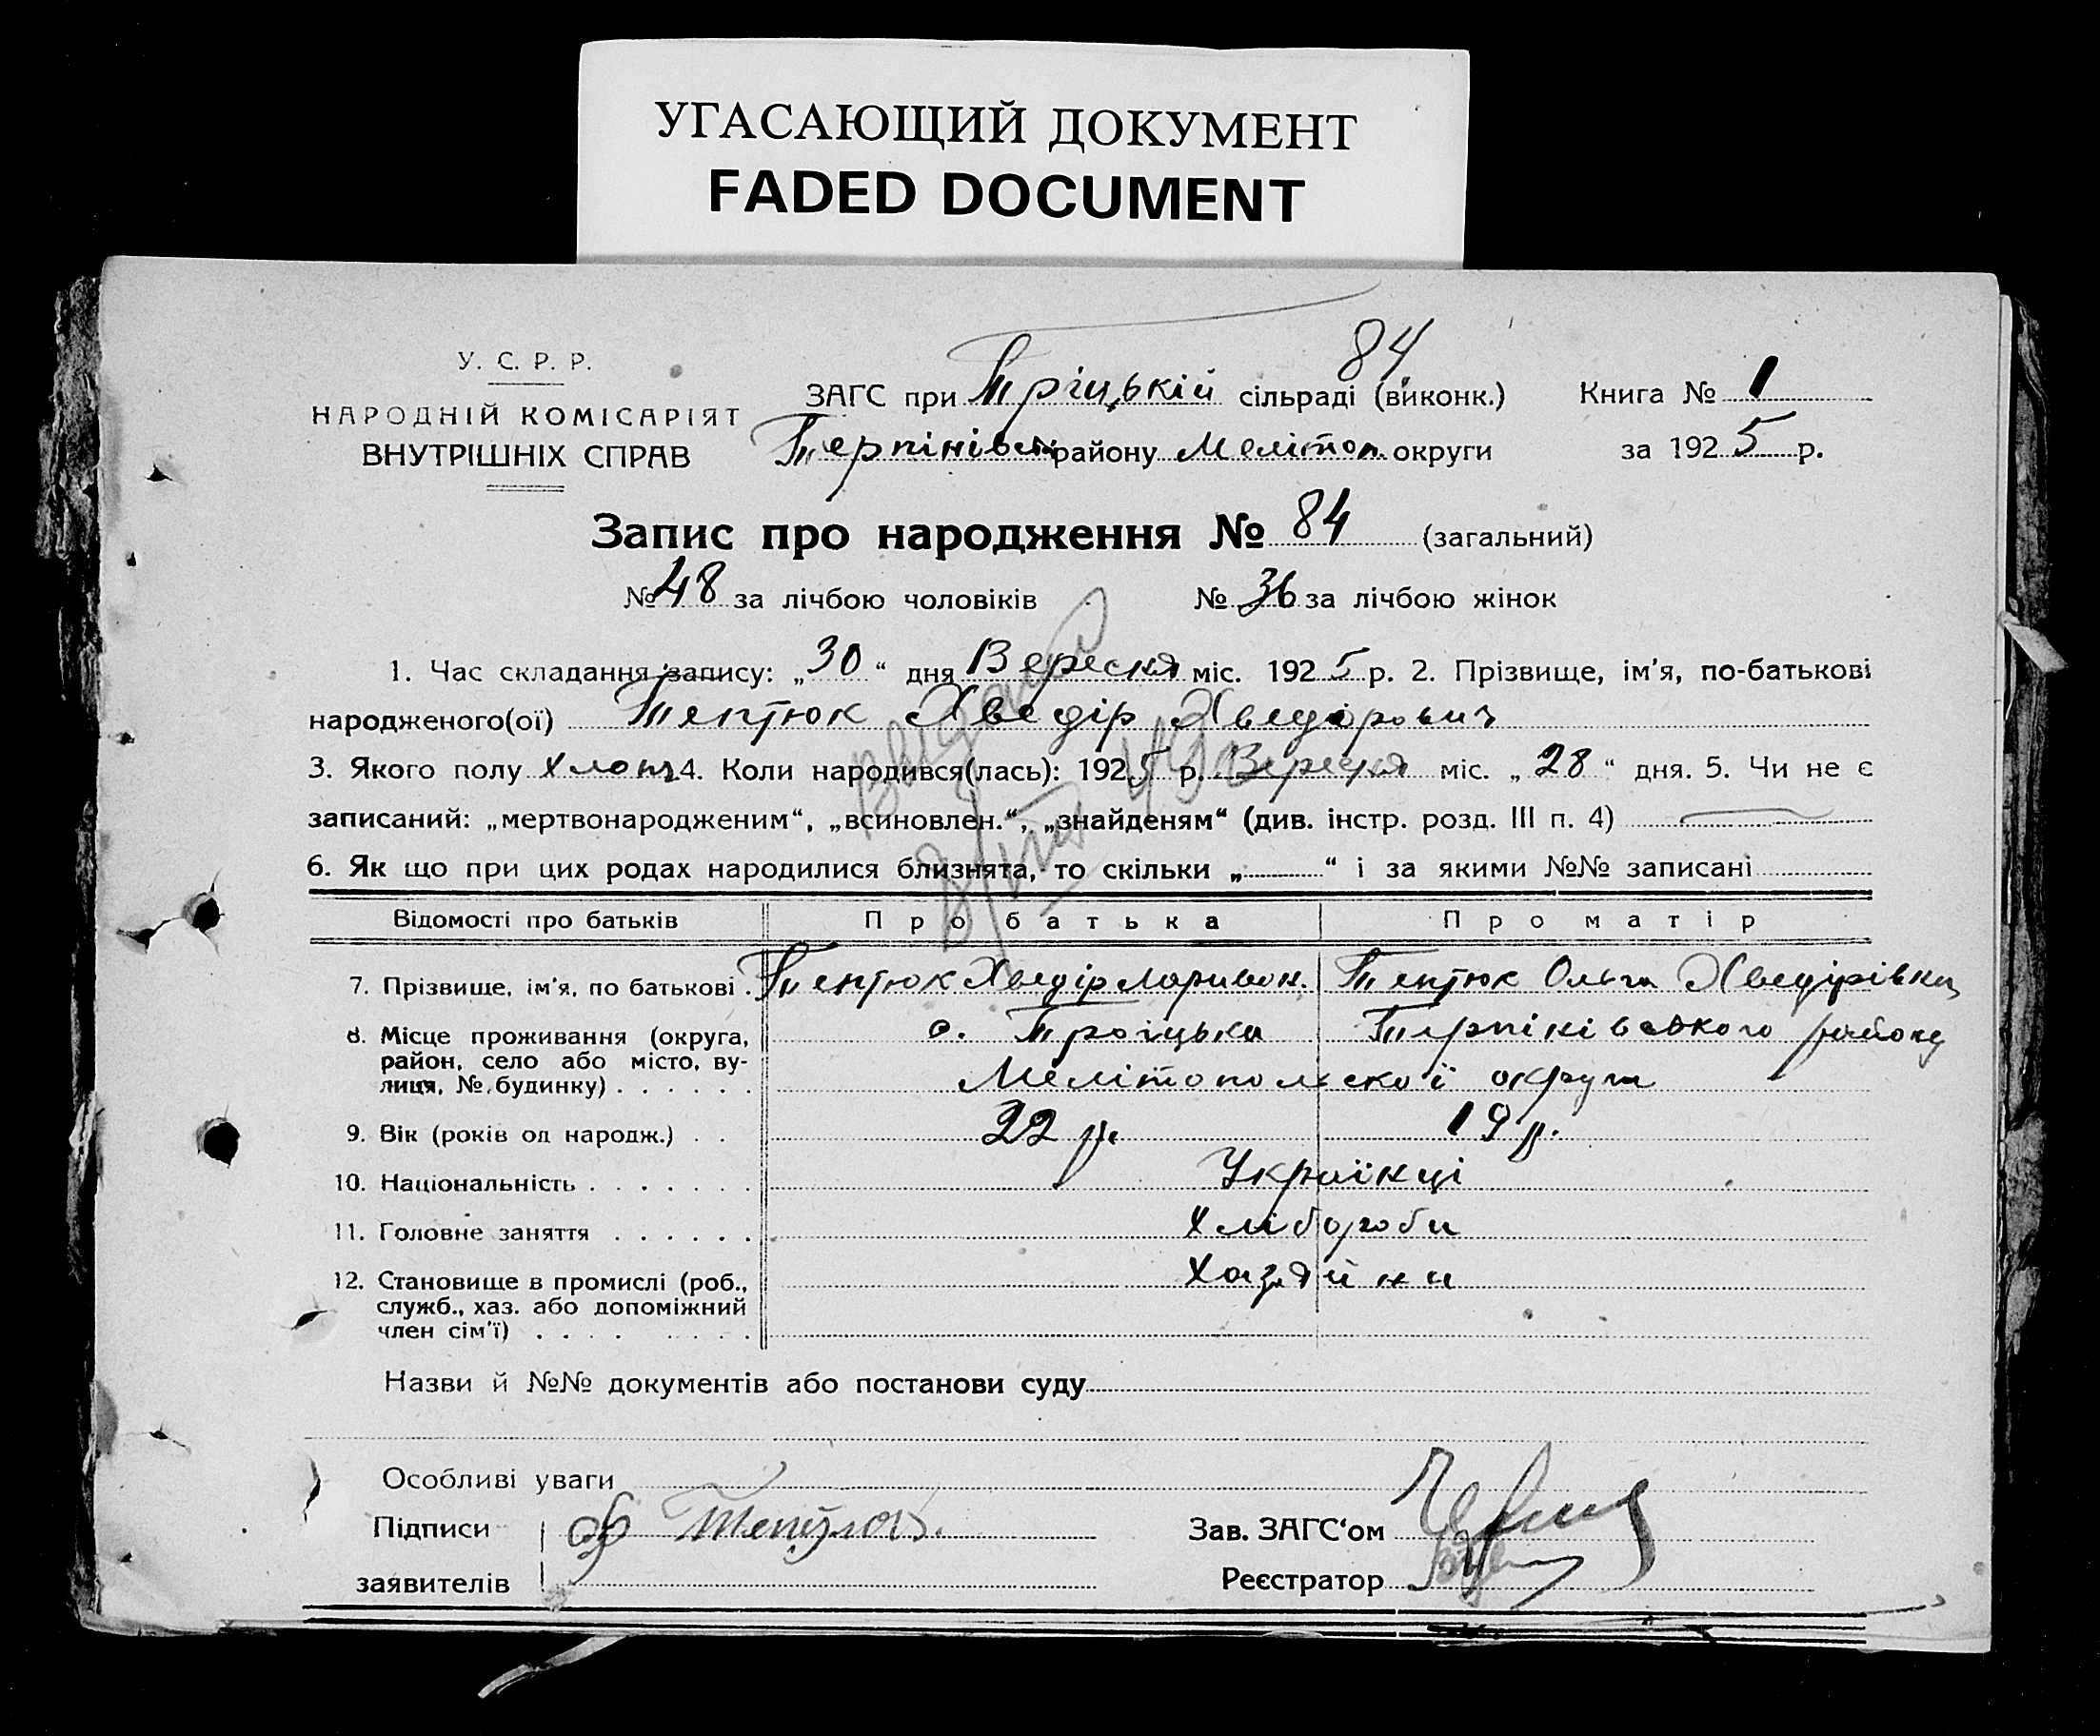 УГАСАЮЩИЙ ДОКУМЕНТ
FADED DOCUMENT
84
У. С. Р. Р.
НАРОДНІЙ КОМІСАРІЯТ
ВНУТРІШНІХ СПРАВ
ЗАГС при Тріцькій сільраді (виконк.) Книга № 1
Терпінівськ району Мелітоп. округи за 1925 р.
Запис про народження № 84 (загальний)
№ 48 за лічбою чоловіків № 36 за лічбою жінок
1. Час складання запису: „30“ дня Вересня міс. 1925 р. 2. Прізвище, ім'я, по-батькові
народженого(ої) Тептюк Хведір Хведорович
3. Якого полу хлопц 4. Коли народився(лась): 1925 р. Вересня міс. „28“ дня. 5. Чи не є
записаний: „мертвонародженим“, „всиновлен.“, „знайденям“ (див. інстр. розд. III п. 4)
6. Як що при цих родах народилися близнята, то скільки „ “ і за якими №№ записані
Відомості про батьків Про батька Про матір
7. Прізвище, ім'я, по батькові . Тептюк Хведір Ларивон. Тептюк Ольга Хведірівна
8. Місце проживання (округа, с. Троїцька Терпінівського району
район, село або місто, ву-
лиця, № будинку) . . . . . . Мелітопольскої округи
9. Вік (років од народж.) . . 22 р. 19 р.
10. Національність . . . . . . . Українці
11. Головне заняття . . . . . . Хлібороби
12. Становище в промислі (роб., Хазяйни
служб., хаз. або допоміжний
член сім'ї) . . . . . . . .
Назви й №№ документів або постанови суду
Особливі уваги
Підписи Зав. ЗАГС'ом
заявителів Реєстратор